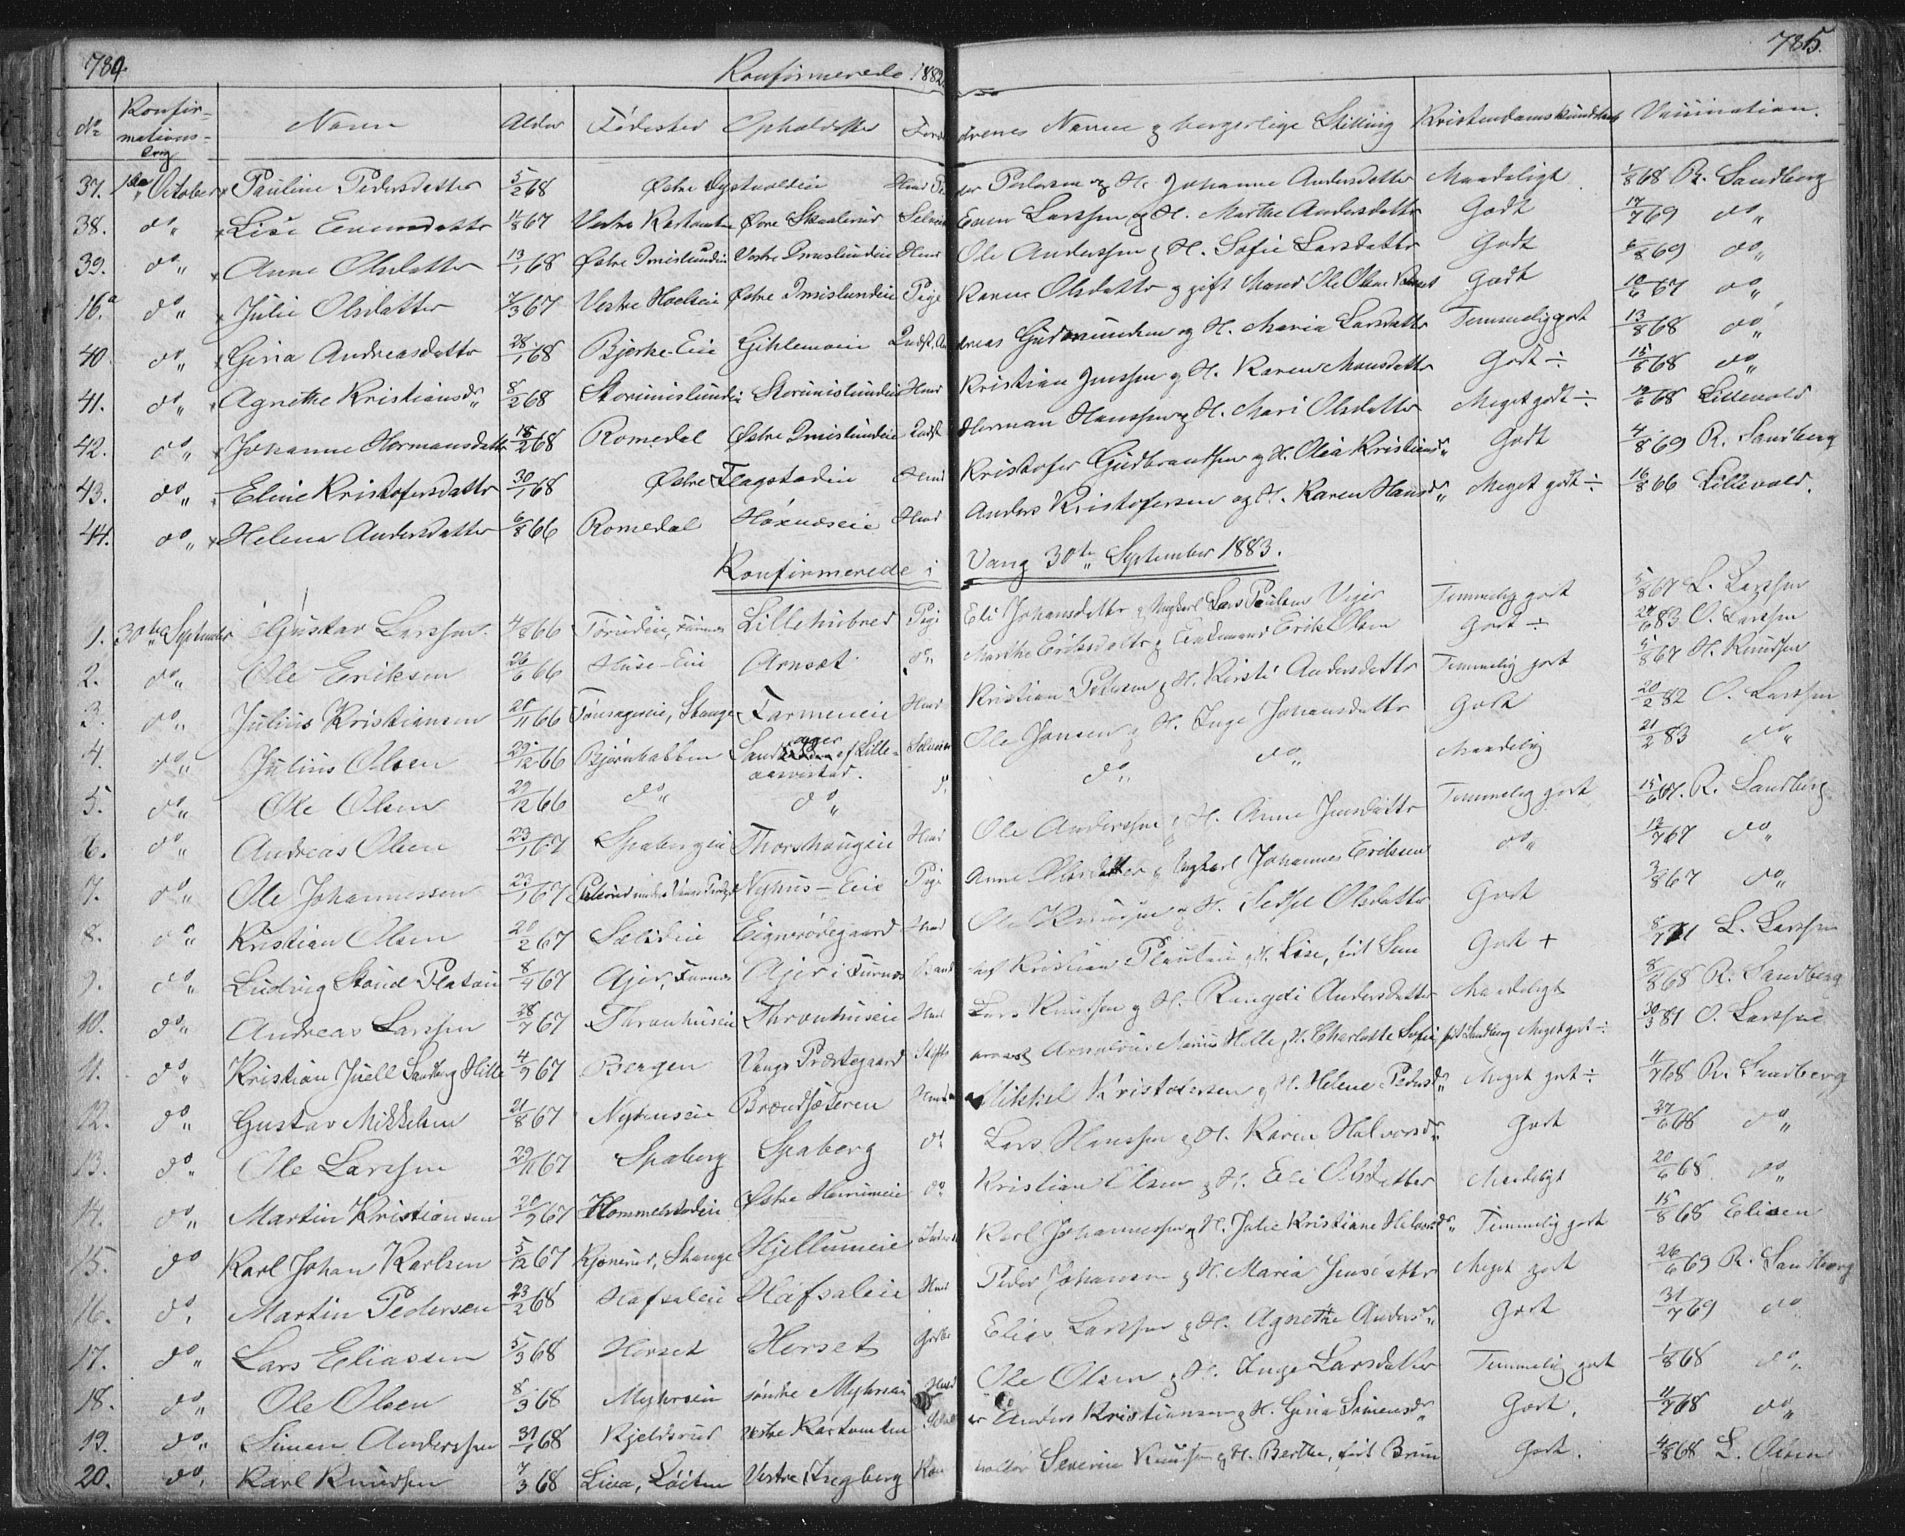 784. Konfirmerede 1882. 785.
No Konfirmationsdag Navn Alder Fødested Opholdssted Forældrenes Navne og borgerlige Stilling Kristendomskundskab Vaccination.
37. 1ste October Pauline Pedersdatter 5/2 68 Østre Huusm. Peder Pedersen og H. Johanne Andersdatter Maadeligt 1/8 68 R. Sandberg
38. do „ Lise Evensdatter 11/8 67 Vestre Kartomten Øvre Skaalerud Even Larssen og H. Marthe Andersdatter Godt 17/7 69 do „
39. do „ Anne Olsdatter 13/1 68 Østre Imislundeie Vestre Imislundeie Huusm. Ole Anderssen og H. Sofie Larsdatter Godt 6/8 69 do „
16.a do „ Julie Olsdatter 7/3 67 Vestre Hoelseie Østre Imislundeie Pige Karen Olsdatter og gift Mand Ole Olsen Godt 10/6 67 do „
40. do „ Gina Andreasdatter 28/1 68 Bjerke-Eie Gihlemoeie Indst. Andreas Gudmundsen og H. Maria Larsdatter Temmelig godt 13/8 68 do „
41. do „ Agnethe Kristiansd. 8/2 68 Storimislundeie Storimislundeie Huusm. Kristian Jenssen og H. Karen Monsdatter Godt ÷ 15/8 68 do „
42. do „ Johanne Hermansdatter 18/2 68 Romedal Østre Imislundeie Indst. Herman Hanssen og H. Mari Olsdatter Meget godt ÷ 14/6 68 Lillevold
43. do „ Eline Kristofersdatter 30/1 68 Østre Flagstadeie Huusm. Kristofer Gudbrandsen og H. Olea Kristiansd. Godt 4/8 69 R. Sandberg
44. do „ Helena Andersdatter 6/8 66 Romedal Huusm. Anders Kristofersen og H. Karen Hansd. Meget godt ÷ 16/8 66 Lillevold.
Konfirmerede i Vang 30te September 1883.
1. 30te September Gustav Larssen 4/8 66 Torudeie, Furnes Lillehubred Pige Eli Johansdatter og Ungkarl Lars Paulsen Temmelig godt 5/8 67 L. Larssen
2. do „ Ole Eriksen 26/6 66 Huse-Eie Arnset do „ Marthe Eriksdatter og Enkemand Erik Olsen Godt ÷ 83 O. Larssen
3. do „ Julius Kristiansen 20/11 66 Stange Farmeneie Huusm. Kristian Petersen og H. Kirsti Andersdatter Temmelig godt 5/8 67 H. Knudsen
4. do „ Julius Olsen 29/12 66 Bjørnhabben Sandager af Lille- aarvestad. Ole Jonsen og H. Inge Johansdatter Godt 20/2 82 O. Larssen
5. do „ Ole Olsen 29/12 66 do „ do „ do „ do „ Maadelig 21/2 83 do „
6. do „ Andreas Olsen 23/1 67 Spabergeie Thorshaugeie Huusm. Ole Anderssen og H. Anne Jensdatter Temmelig godt 15/6 67. R. Sandberg
7. do „ Ole Johannessen 23/1 67 Nyhus-Eie Pige Anne Olsdatter og Ungkarl Johannes Eriksen do „ 12/7 67 do „
8. do „ Kristian Olsen 20/2 67 Sælideie Eignerødegaard Huusm. Ole Knudsen og H. Sidsel Olsdatter Godt 3/8 67 do „
9. do „ Ludvig Stoud Platou 8/4 67 Ajer, Furnes Ajer i Furnes Kristian Plautou og H. Lise, født Godt + 8/7 71 L. Larssen
10. do „ Andreas Larssen 28/7 67 Thronhuseie Thronhuseie Huusm. Lars Knudsen og H. Rangdi Andersdatter Maadeligt 8/8 68 R. Sandberg
11. do „ Kristian Juell Sandberg Hille 4/9 67 Bergen Vangs Præstegaard Stifts- Marius Hille, H. Charlotte Sofie født Sandberg Meget godt ÷ 30/3 81 O. Larssen
12. do „ Gustav Mikkelsen 21/8 67 Nyhuseie Brændsæteren Mikkel Kristofersen og H. Helene Pedersd. Meget godt ÷ 11/7 68 R. Sandberg
13. do „ Ole Larssen 29/11 67 Spaberg Spaberg do Lars Hanssen og H. Karen Halvorsd. Godt 27/6 68 do „
14. do „ Martin Kristiansen 20/9 67 Hommelstadeie Østre do Kristian Olsen og H. Eli Olsdatter Maadeligt 20/6 68 do „
15. do Karl Johan Karlsen 5/12 67 Kjonerud, Stange Hjellumeie Karl Johannessen og H. Julie Kristiane Temmelig godt 15/8 68 Eliasen
16. do. Martin Pedersen 23/2 68 Hafsaleie Hafsaleie Huusm. Peder Johansen og H. Maria Jensdatter Meget godt 26/6 69 R. Sandberg
17. do „ Lars Eliassen 5/3 68 Horset Horset Elias Larssen og H. Agnethe Andersd. Godt 31/7 69 do
18. do „ Ole Olsen 8/3 68 Myhrseie søndre Myhrseie Huusm. Ole Olsen og H. Inge Larsdatter Temmelig godt 1/8 68 do „
19. do „ Simen Anderssen 31/1 68 Kjeldsrud vestre Kartomten Anders Kristiansen og H. Gina Simensd. Godt. 11/7 68 do „
20. do. Karl Knudsen 7/3 68 Løiten Vestre Severin Knudsen og H. Berthe, født Brun Godt. 4/8 68 L. Olsen